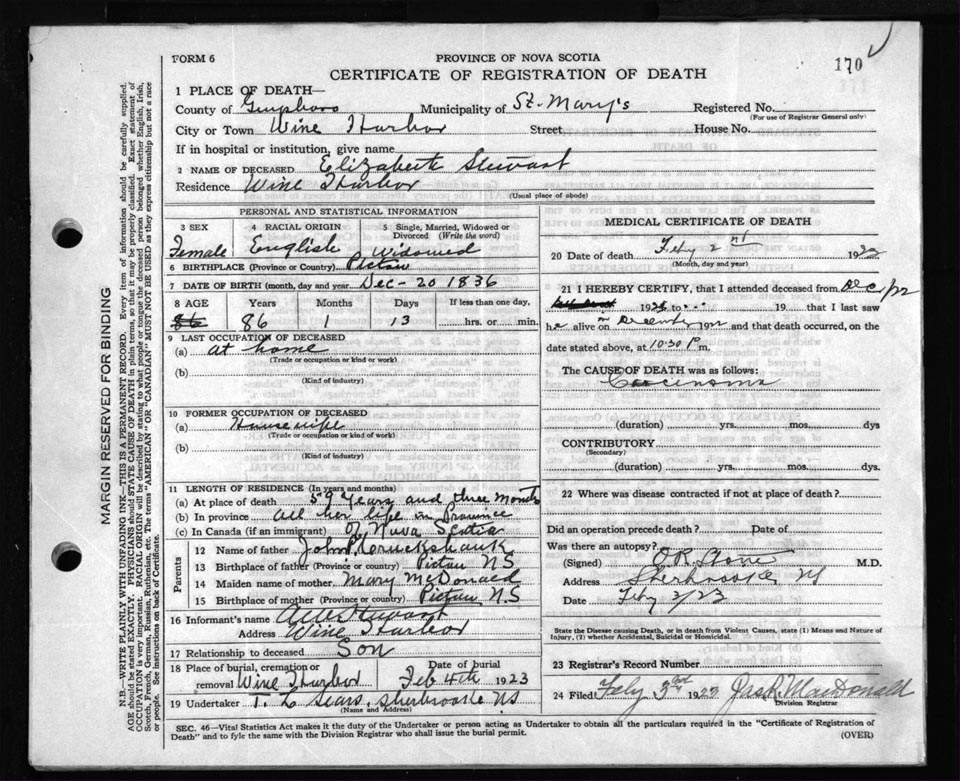 FORM 6
PROVINCE OF NOVA SCOTIA
170
CERTIFICATE OF REGISTRATION OF DEATH
1 PLACE OF DEATH—
County of Guysboro Municipality of St. Mary's Registered No.
(For use of Registrar General only)
City or Town Wine Harbor Street House No.
If in hospital or institution, give name
2 NAME OF DECEASED Elizabeth Stewart
Residence Wine Harbor
(Usual place of abode)
PERSONAL AND STATISTICAL INFORMATION
3 SEX 4 RACIAL ORIGIN 5 Single, Married, Widowed or
Divorced (Write the word)
Female English Widowed
6 BIRTHPLACE (Province or Country) Pictou
7 DATE OF BIRTH (month, day and year) Dec - 20 1836
8 AGE Years Months Days If less than one day,
86 86 1 13 hrs. or min.
9 LAST OCCUPATION OF DECEASED
(a) at home
(Trade or occupation or kind or work)
(b)
(Kind of industry)
10 FORMER OCCUPATION OF DECEASED
(a) Housewife
(Trade or occupation or kind of work)
(b)
(Kind of industry)
11 LENGTH OF RESIDENCE (In years and months)
(a) At place of death 59 Years and three Months
(b) In province all her life in Province
(c) In Canada (if an immigrant) of Nova Scotia
Parents
12 Name of father John Cruckshank
13 Birthplace of father (Province or country) Pictou NS
14 Maiden name of mother Mary McDonald
15 Birthplace of mother (Province or country) Pictou NS
16 Informant's name Stewart
Address Wine Harbor
17 Relationship to deceased Son
18 Place of burial, cremation or Date of burial
removal Wine Harbor Feb 4th 1923
19 Undertaker Sears, Sherbrooke NS
(Name and Address)
MEDICAL CERTIFICATE OF DEATH
20 Date of death Feby 2nd 1923
(Month, day and year)
21 I HEREBY CERTIFY, that I attended deceased from Dec/22
192 to 19 that I last saw
her alive on December 1922 and that death occurred, on the
date stated above, at 10.30 P m.
The CAUSE OF DEATH was as follows:
Carcinoma
(duration) yrs. mos. dys
CONTRIBUTORY
(Secondary)
(duration) yrs. mos. dys.
22 Where was disease contracted if not at place of death?
Did an operation precede death? Date of
Was there an autopsy?
(Signed) M.D.
Address Sherbrooke NS
Date Feby 3/23
State the Disease causing Death, or in death from Violent Causes, state (1) Means and Nature
of Injury, (2) whether Accidental, Suicidal or Homicidal.
23 Registrar's Record Number
24 Filed Feby 3rd 1923 Jas R. MacDonald
Division Registrar
SEC. 46—Vital Statistics Act makes it the duty of the Undertaker or person acting as Undertaker to obtain all the particulars required in the "Certificate of Registration of
Death" and to fyle the same with the Division Registrar who shall issue the burial permit.
(OVER)
MARGIN RESERVED FOR BINDING
N.B.—WRITE PLAINLY WITH UNFADING INK—THIS IS A PERMANENT RECORD. Every item of information should be carefully supplied.
AGE should be stated EXACTLY. PHYSICIANS should STATE CAUSE OF DEATH in plain terms, so that it may be properly classified. Exact statement of
OCCUPATION is very important. RACIAL ORIGIN will be described by stating to what people or tongue the deceased person belonged whether English, Irish,
Scotch, French, German, Russian, Ruthenian, etc. The terms "AMERICAN" OR "CANADIAN" MUST NOT BE USED as they express citizenship but not a race
or people. See instructions on back of Certificate.